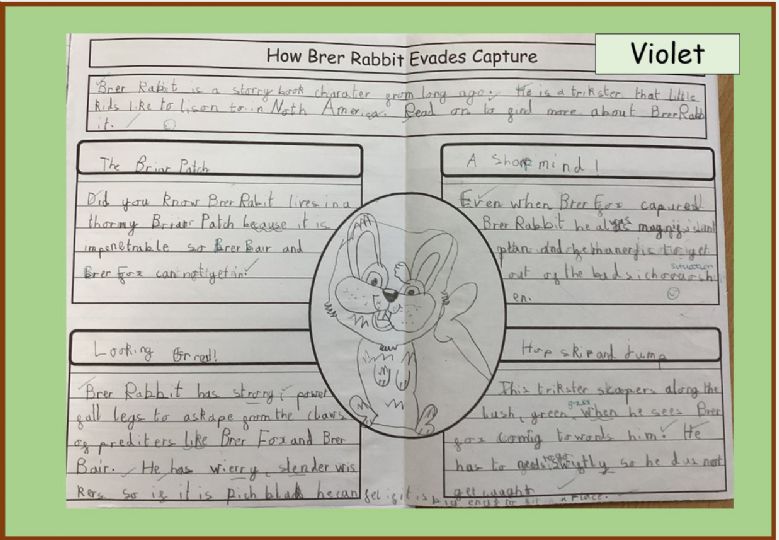 How Brer Rabbit Evades Capture
Violet
Brer Rabbit is a storry book charater from long ago. He is a trikster that little
kids like to lison to in Noth America. Read on to find more about Brer Rabb
it.
The Briar Patch
Did you know Brer Rabit lives in a
thorny Briar Patch because it is
impenetrable so Brer Bair and
Brer Fox can not get in!
Looking Good!
Brer Rabbit has strong, power
full legs to askape from the claws
of prediters like Brer Fox and Brer
Bair. He has wierry, slender wis
kers so if it is pich black he can feel if it is big enuf to fit in a place.
A sharp mind!
Even when Brer Fox captured
Brer Rabbit he was
plan and to get
out of the bad situation
en.
Hop skip and jump
This trikster skapers along the
lush, green, grass when he sees Brer
fox comig towards him. He
has to swiftly so he dus not
get caught